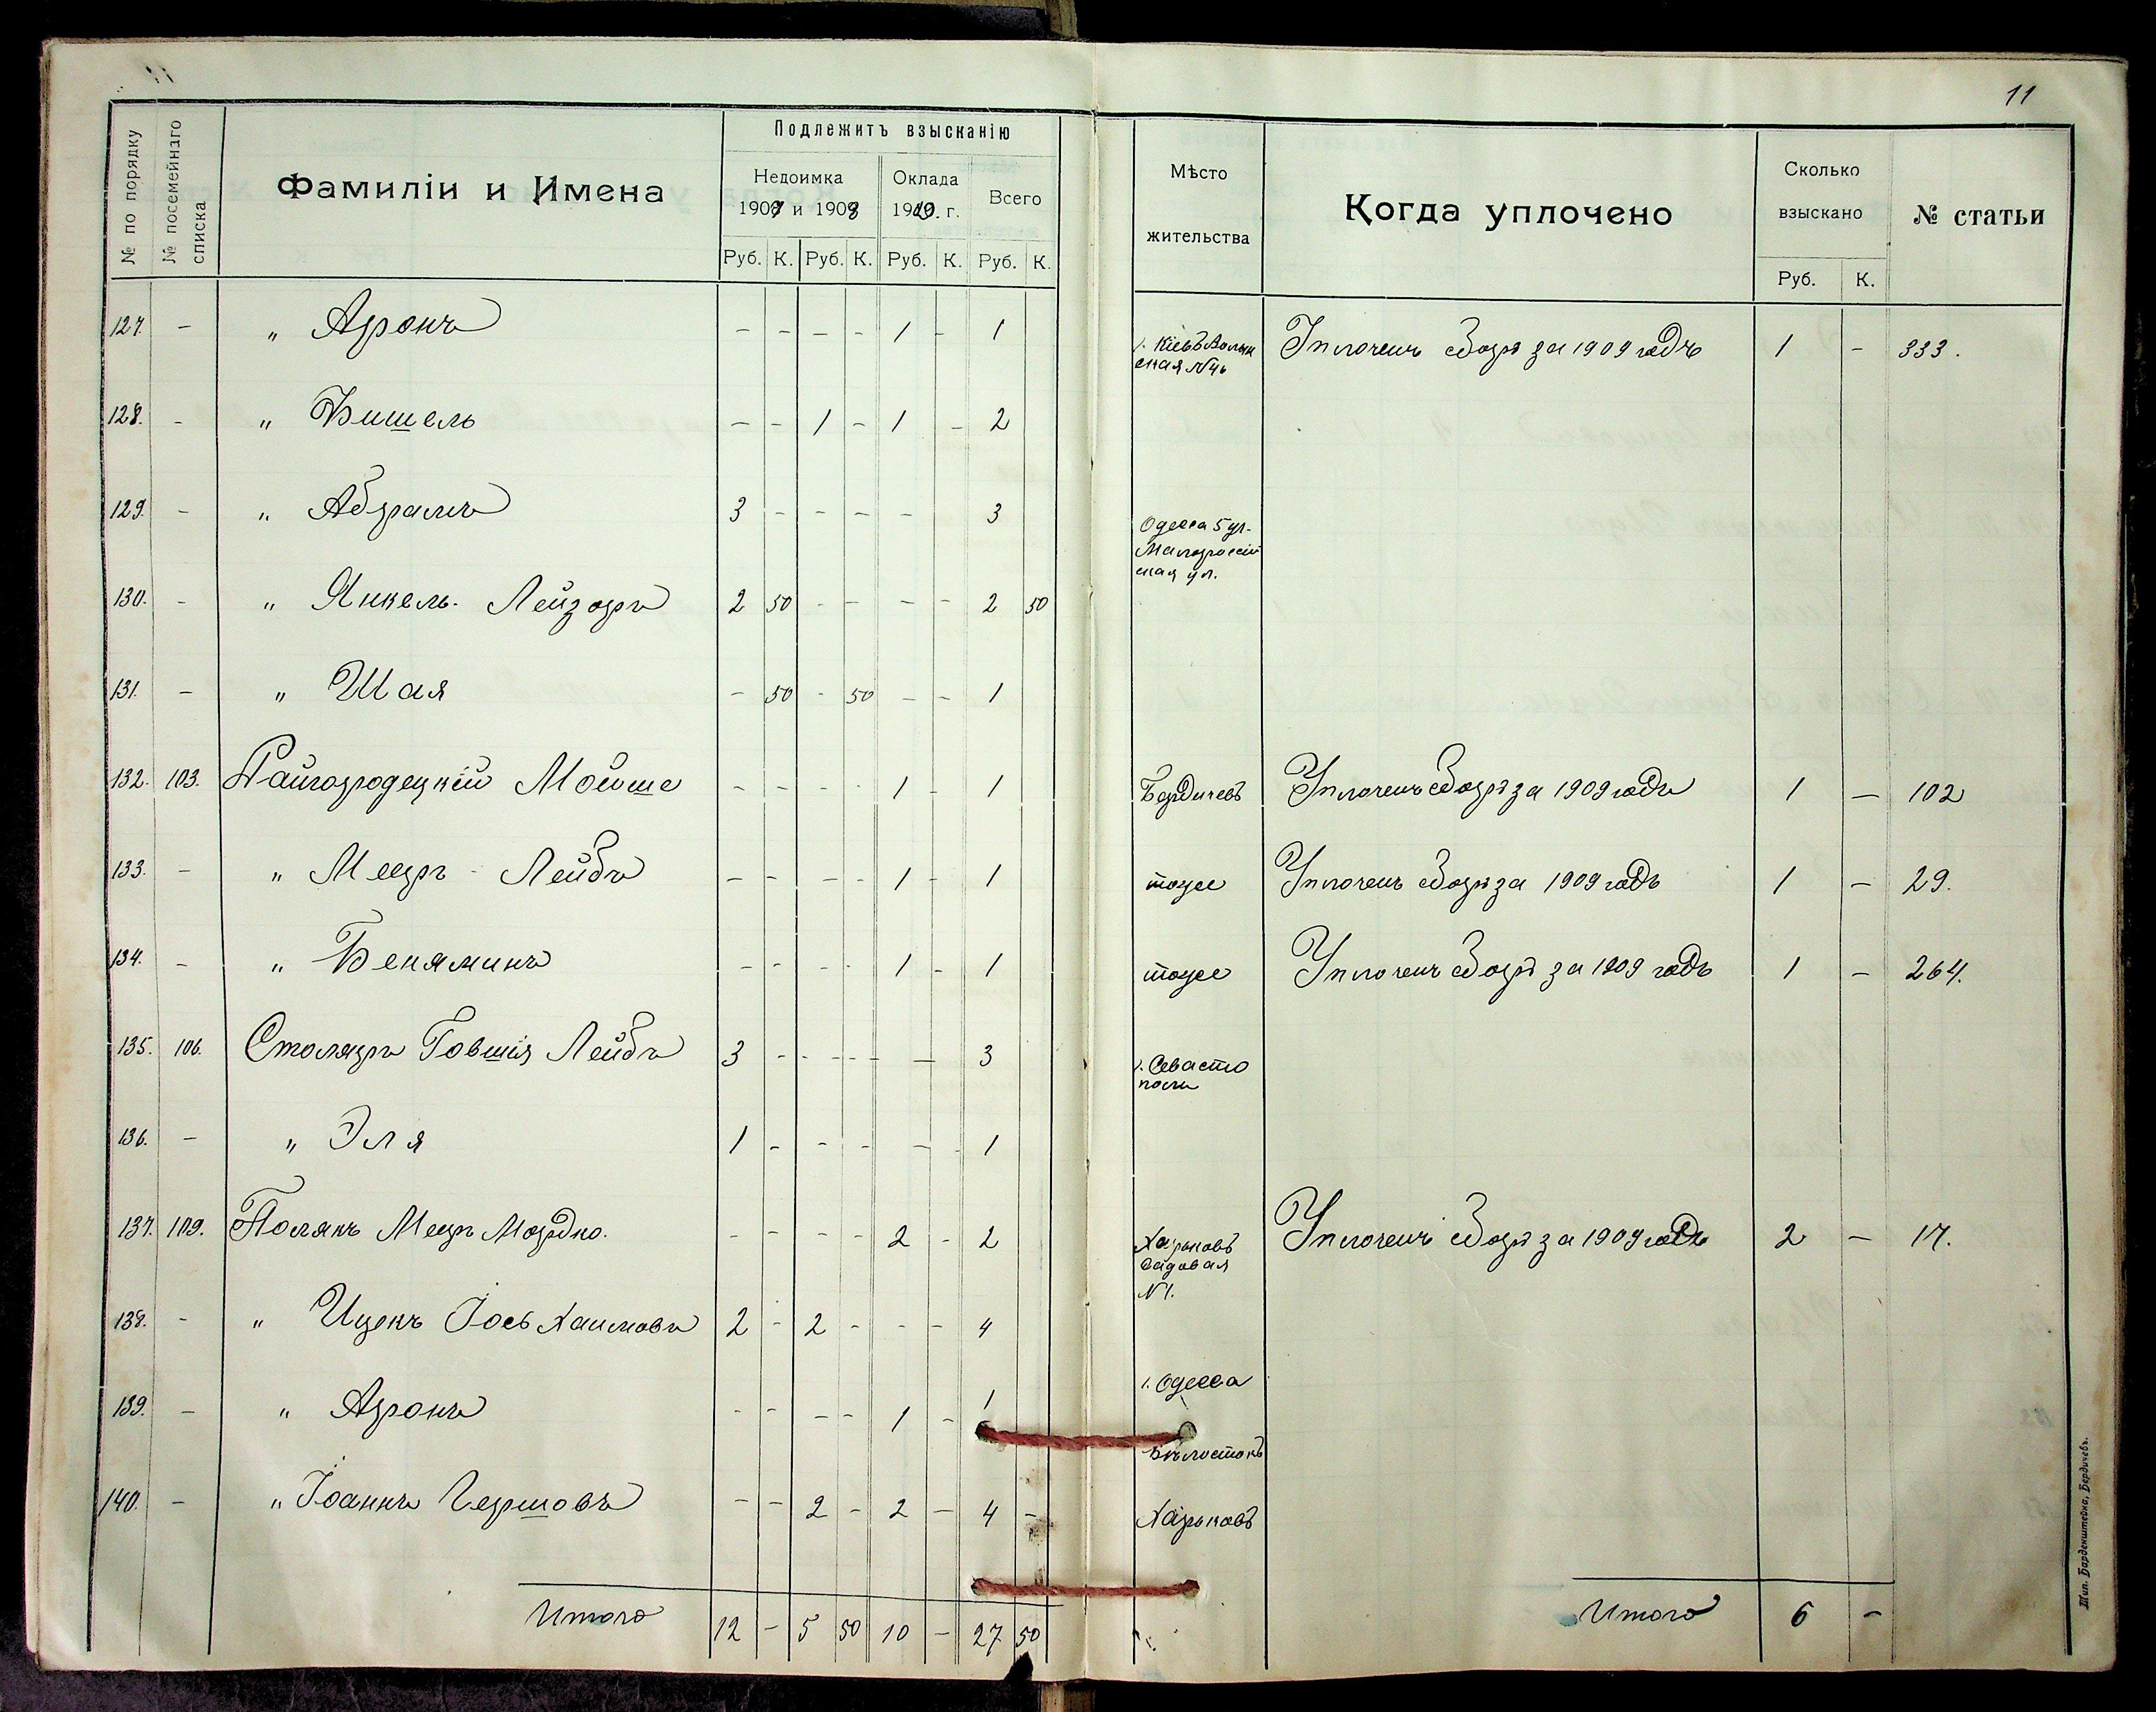 11
№ по порядку
№ посемейнаго списка
Фамиліи и Имена
Подлежитъ взысканію
Недоимка
1907 и 1908
Оклада
1909. г.
Всего
Руб. К. Руб. К. Руб. К. Руб. К.
Мѣсто
жительства
Когда уплочено
Сколько
взыскано
Руб. К.
№ статьи
127. – " Аронъ – – – – 1 – 1
г. Кіевъ Волын
ская №46
Уплоченъ сборъ за 1909 годъ 1 – 333.
128. – " Фишель – – 1 – 1 – 2
129. – " Абрамъ 3 – – – – 3
Одесса 5 ул.
Малороссій
ская ул.
130. – " Янкель-Лейзоръ 2 50 – – – – 2 50
131. – " Шая – 50 – 50 – – 1
132. 103. Райгородецкій Мойше – – – – 1 – 1
Бердичевъ Уплоченъ сборъ за 1909 годъ 1 – 102
133. – " Мееръ - Лейбъ – – – – 1 – 1
тоже Уплоченъ сборъ за 1909 годъ 1 – 29.
134. – " Беняминъ – – – – 1 – 1
тоже Уплоченъ сборъ за 1909 годъ 1 – 264.
135. 106. Столяръ Говшія Лейбъ 3 – – – – – 3
г. Севасто
поль
136. – " Эля 1 – – – – – 1
137. 109. Полякъ Мееръ Мордко. – – – – 2 – 2
Харьковъ
Садовая
№1.
Уплоченъ сборъ за 1909 годъ 2 – 17.
138. – " Ицекъ Іось Хаимовъ 2 – 2 – – – 4
г. Одесса
139. – " Аронъ – – – – 1 – 1
Бѣлостокъ
140. – " Іоаннъ Гершовъ – – 2 – 2 – 4 –
Харьковъ
Итого 12 – 5 50 10 – 27 50
Итого 6 –
Тип. Барденштейна, Бердичевъ.